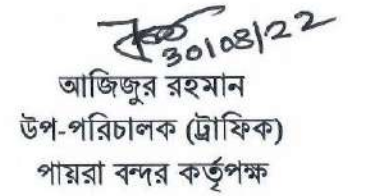 30/08/22
আজিজুর রহমান
উপ-পরিচালক (ট্রাফিক)
পায়রা বন্দর কর্তৃপক্ষ